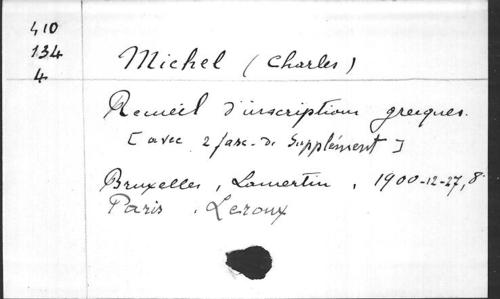 410
134
4
Michel (Charles)
Recueil d'inscriptions grecques.
[avec 2 fasc. de Supplément]
Bruxelles, Lamertin, 1900-12-27, 8°
Paris, Leroux